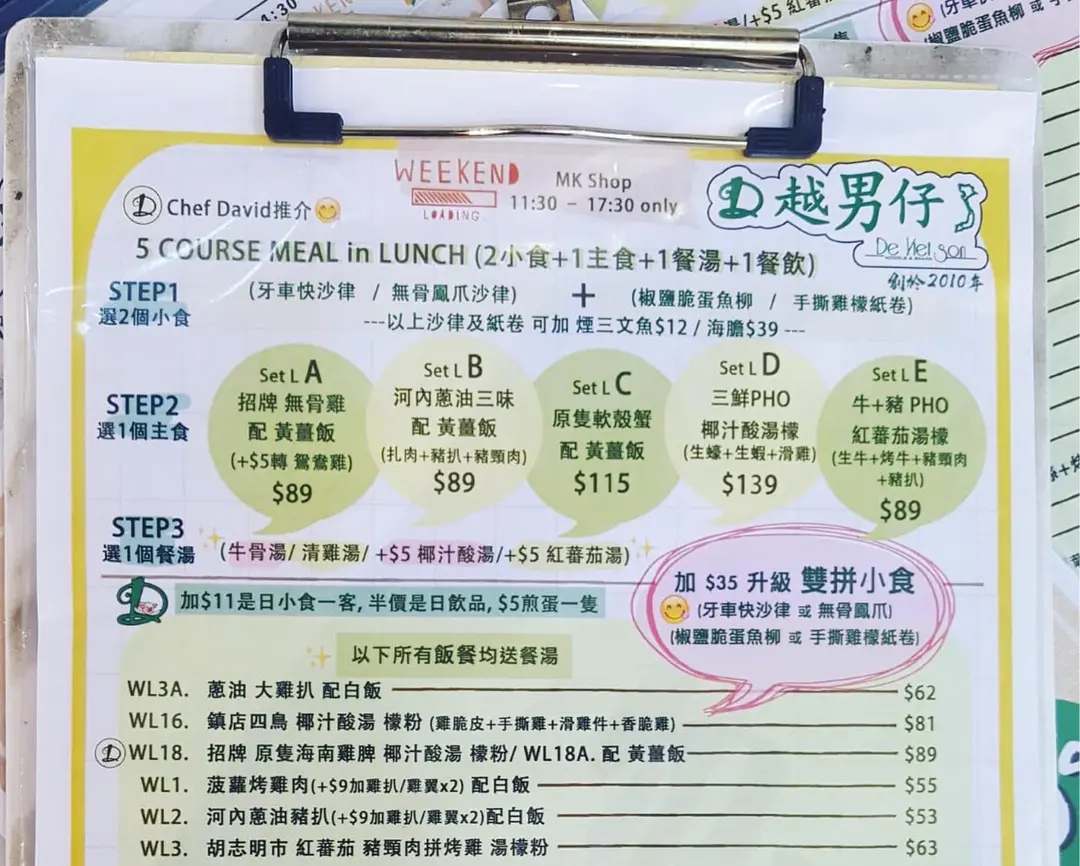 4:30
/+$5 紅蕃茄湯)
(牙車
(椒鹽脆蛋魚柳 或 手
WEEKEND
LOADING
MK Shop
11:30 – 17:30 only
D 越男仔
De Viet Son
創於2010年
D Chef David推介
5 COURSE MEAL in LUNCH (2小食+1主食+1餐湯+1餐飲)
STEP1
選2個小食
(牙車快沙律 / 無骨鳳爪沙律) + (椒鹽脆蛋魚柳 / 手撕雞檬紙卷)
---以上沙律及紙卷 可加 煙三文魚$12 / 海膽$39 ---
STEP2
選1個主食
Set L A
招牌 無骨雞
配 黃薑飯
(+$5轉 鴛鴦雞)
$89
Set L B
河內蔥油三味
配 黃薑飯
(扎肉+豬扒+豬頸肉)
$89
Set L C
原隻軟殼蟹
配 黃薑飯
$115
Set L D
三鮮PHO
椰汁酸湯檬
(生蠔+生蝦+滑雞)
$139
Set L E
牛+豬 PHO
紅蕃茄湯檬
(生牛+烤牛+豬頸肉
+豬扒)
$89
STEP3
選1個餐湯
(牛骨湯/ 清雞湯/ +$5 椰汁酸湯/+$5 紅蕃茄湯)
加$11是日小食一客, 半價是日飲品, $5煎蛋一隻
加 $35 升級 雙拼小食
(牙車快沙律 或 無骨鳳爪)
(椒鹽脆蛋魚柳 或 手撕雞檬紙卷)
以下所有飯餐均送餐湯
WL3A. 蔥油 大雞扒 配白飯 $62
WL16. 鎮店四鳥 椰汁酸湯 檬粉 (雞脆皮+手撕雞+滑雞件+香脆雞) $81
D WL18. 招牌 原隻海南雞髀 椰汁酸湯 檬粉/ WL18A. 配 黃薑飯 $89
WL1. 菠蘿烤雞肉(+$9加雞扒/雞翼x2) 配白飯 $55
WL2. 河內蔥油豬扒(+$9加雞扒/雞翼x2)配白飯 $53
WL3. 胡志明市 紅蕃茄 豬頸肉拼烤雞 湯檬粉 $63